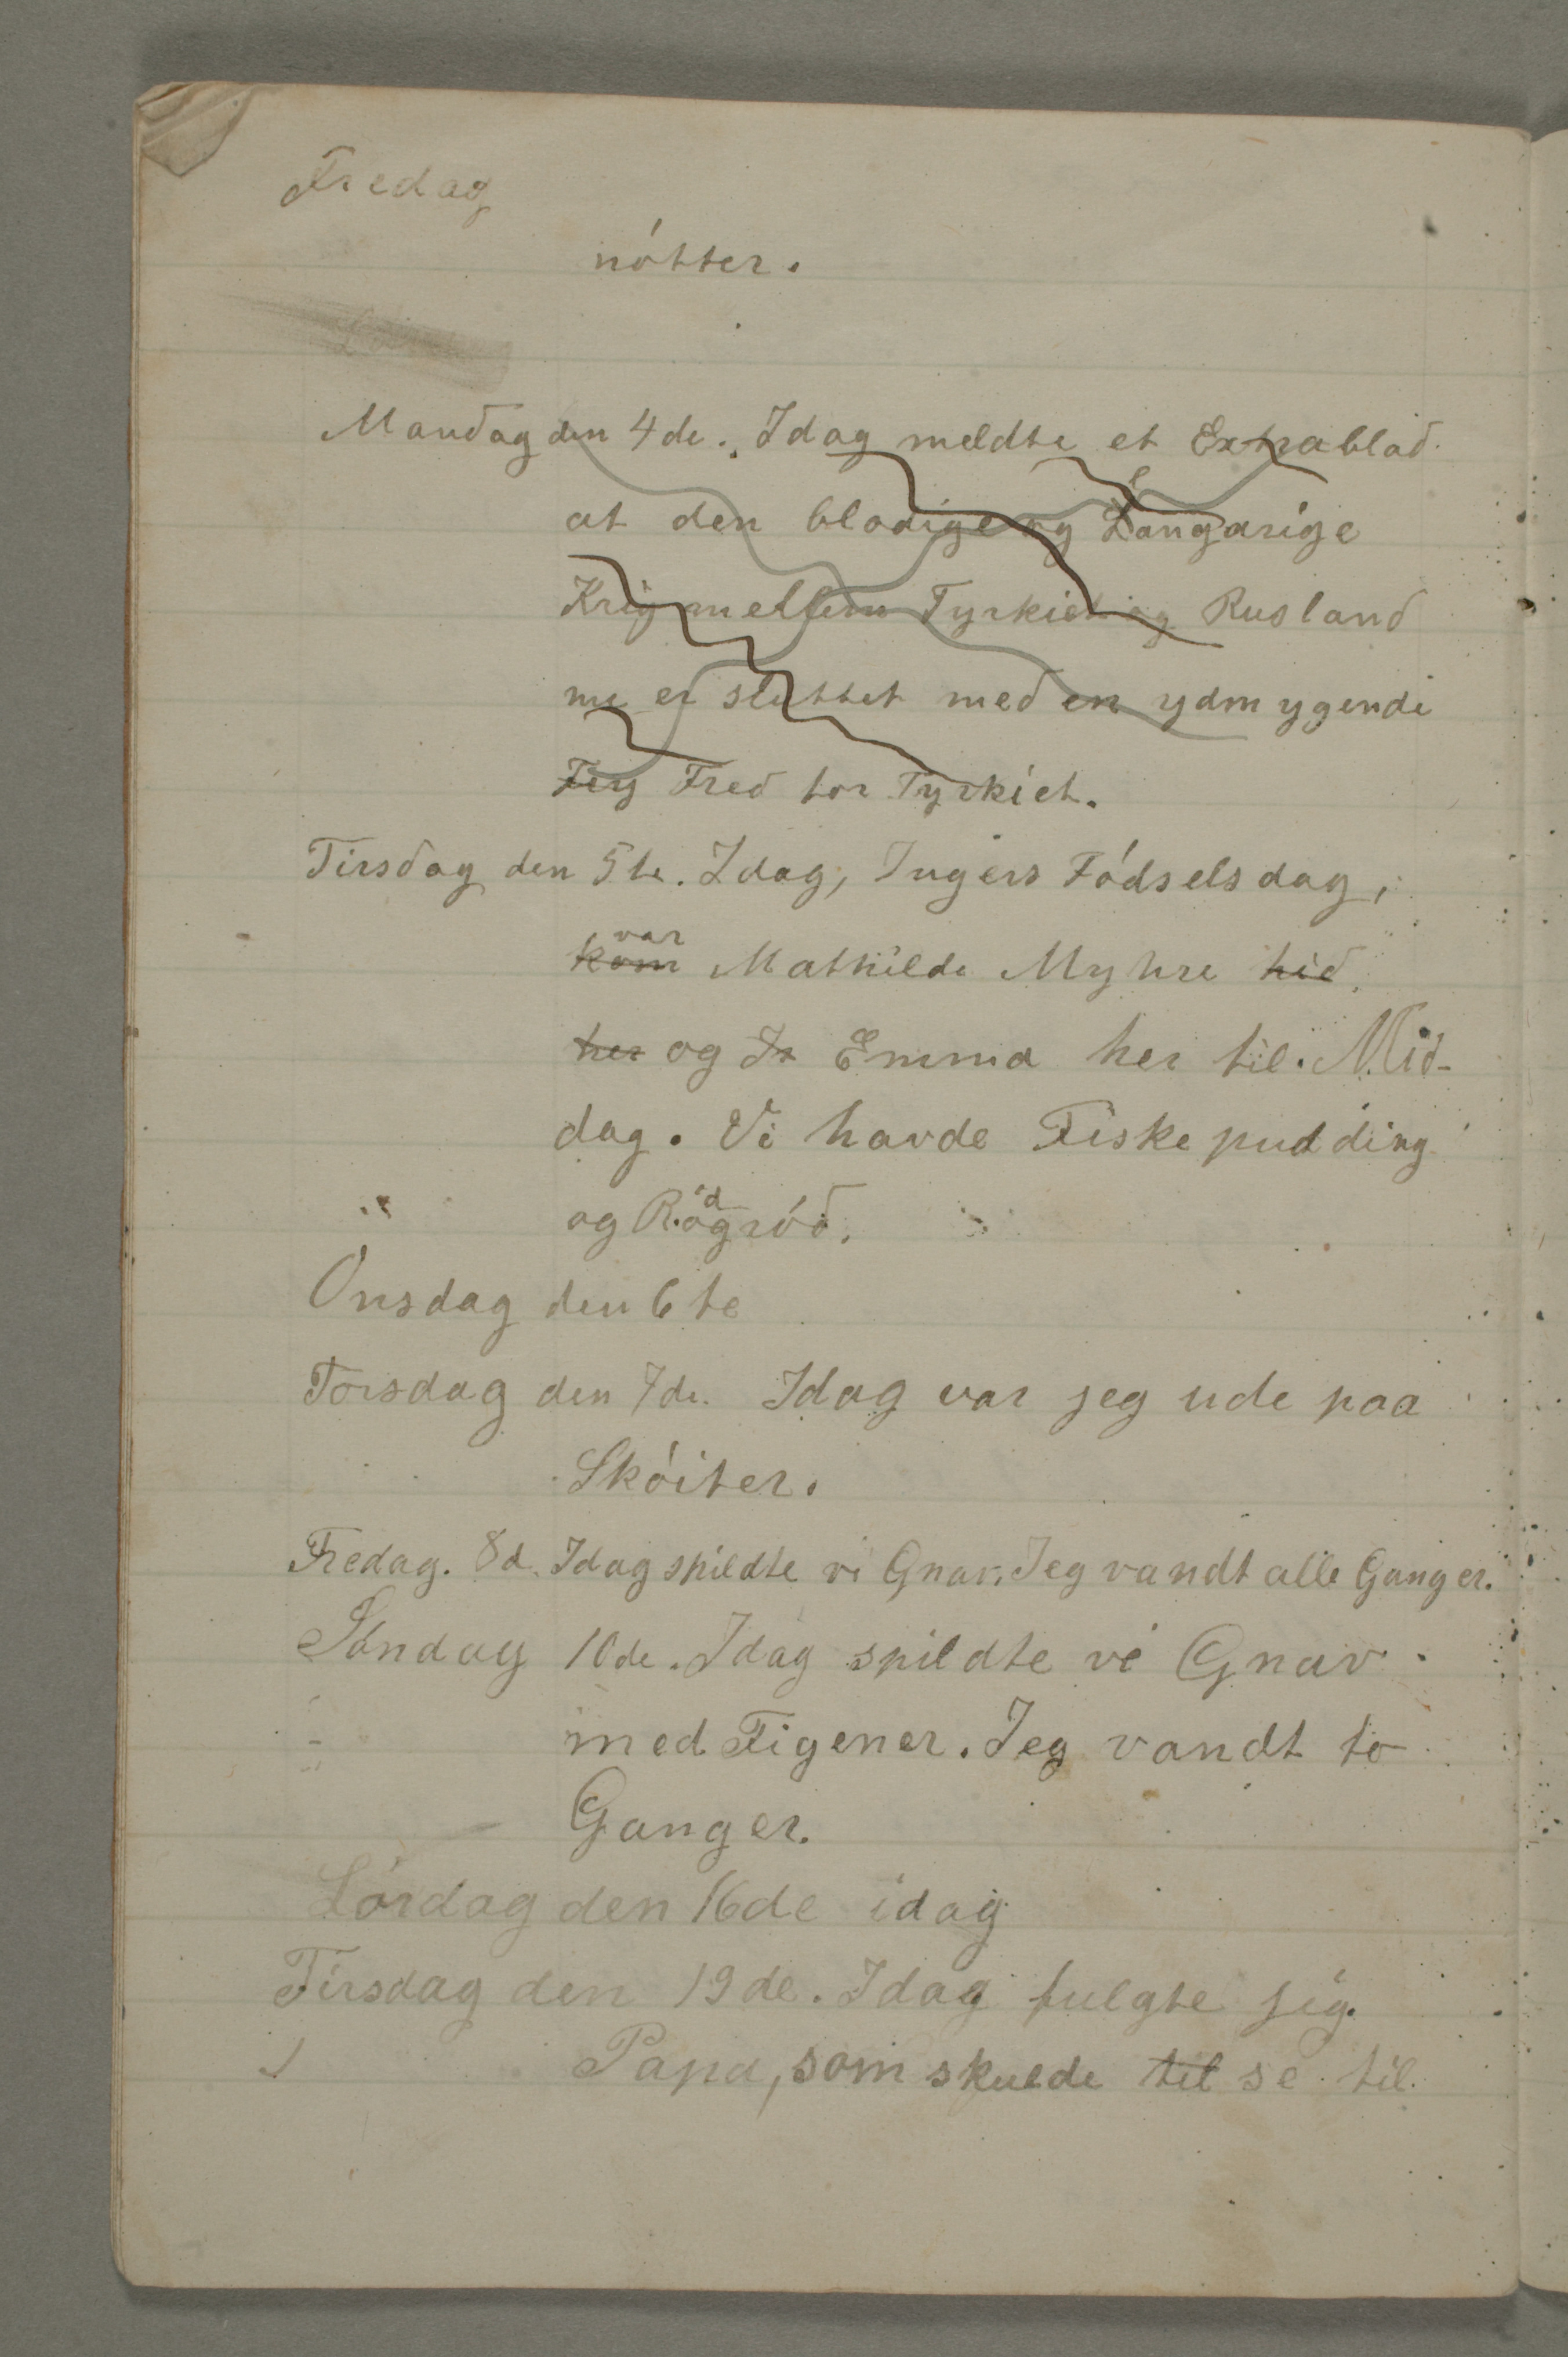 Fredag
nótter.
Mandag den 4de. Idag meldte et Extrablad
at den blodige og Langarige
Krig mellem Tyrkiet og Rusland
nu er sluttet med en ydmygende
Fry Fred for Tyrkiet.
Tirsdag den 5te. Idag, Ingers Fódselsdag,
var
kom Mathilde Myhre hid
her og Is Emma her til Mid-
dag. Vi havde Fiskepudding
d
og Rógród.
Onsdag den 6te
Torsdag den 7de. Idag var jeg ude paa
Skóiter.
Fredag. 8d. Idag spildte vi Gnav. Jeg vandt alle Ganger.
Sóndag 10de. Idag spildte vi Gnav
med Figener. Jeg vandt to
Ganger.
Lórdag den 16de idag
Tirsdag den 19de. Idag fulgte jeg
Papa, som skulde til se til